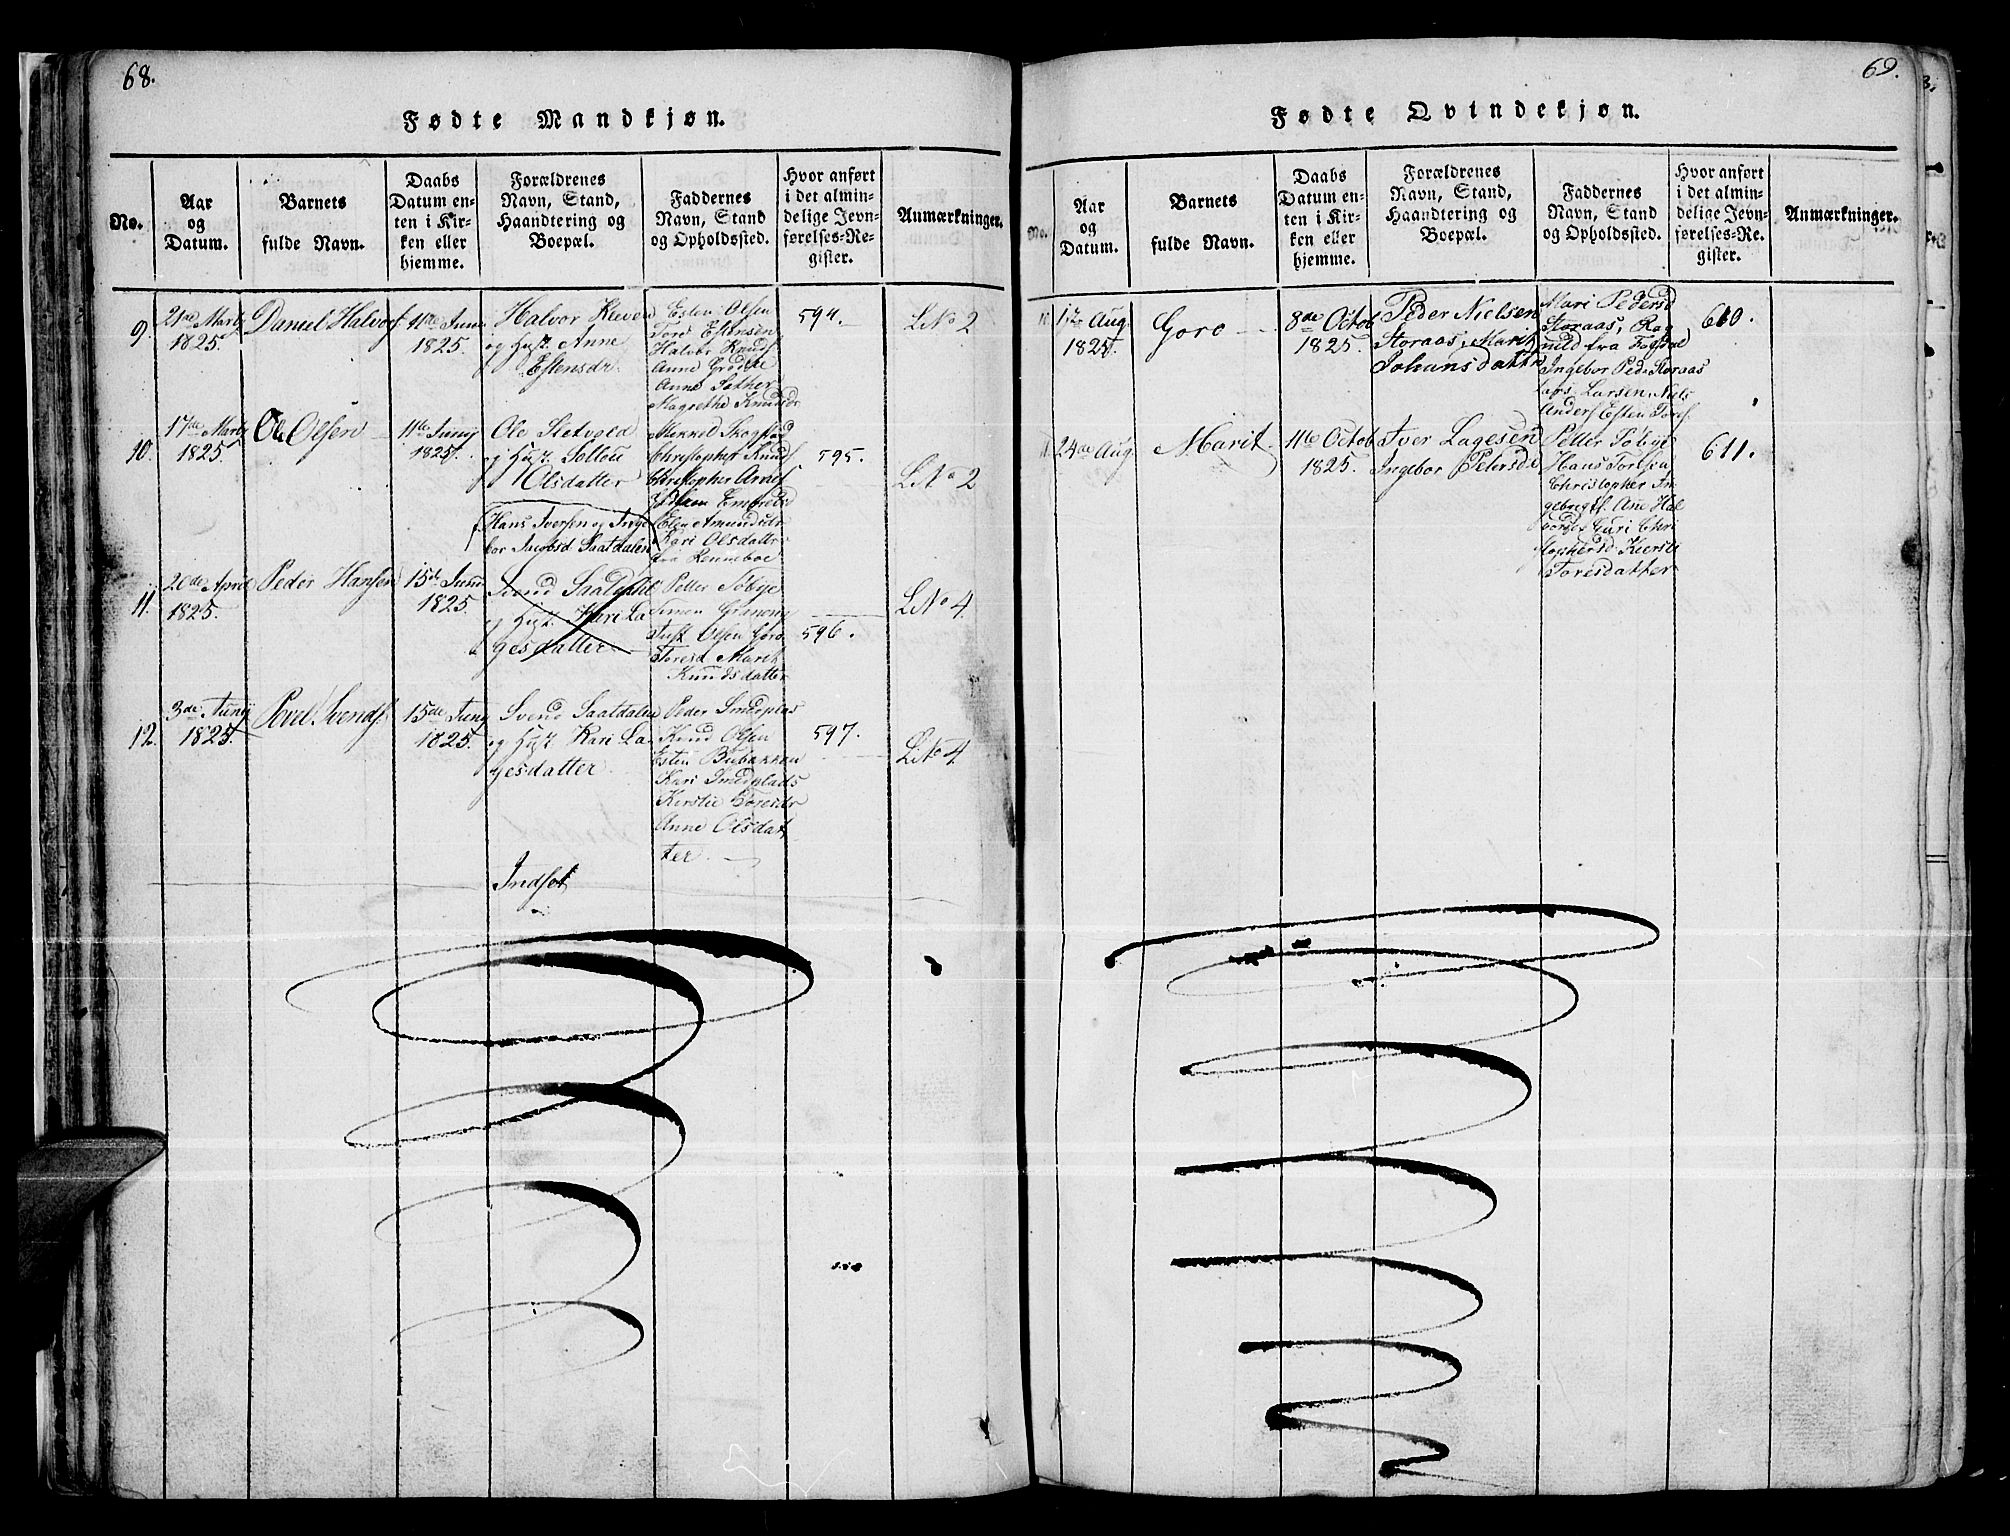 68.
Fødte Mandkjøn.
No.
Aar
og
Datum.
Barnets
fulde Navn.
Daabs
Datum en-
ten i Kir-
ken eller
hjemme.
Forældrenes
Navn, Stand,
Haandtering og
Boepæl.
Faddernes
Navn, Stand
og Opholdssted.
Hvor anført
i det almin-
delige Jevn-
førelses-Re-
gister.
Anmærkninger.
9.
21de Marts
1825.
Daniel Halvors
11te Juni
1825.
Halvor Kleven
og Hust. Anne
Estensdr.
Esten Olsen
Tord Estensen
Halvor Knuds
Anne Grødste
Anne Sæther
Magrethe Knudsdr
594.
L No 2
10.
17de Marts
1825.
Ole Olsen
11te Junij
1825.
Ole Sletvold
og Hust.
Olsdatter
Skogstad
Christopher Knuds
Christopher
Elen Amundsdr
Kari Olsdatter
fra Renneboe
595.
L No 2
Hans Iversen og Inge
bor Jacobsd Saatdalen
11.
20de April
1825.
Peder Hansen
15de Juni
1825.
Svend Saatdalen
og Hust. Kari La
gesdatter
Petter Søbye
Simen Graneng
Just Olsen Goro
Toresd Marit
Knudsdatter
596.
L No 4.
12.
3de Junij
1825.
Povel Svends.
15de Junij
1825.
Svend Saatdalen
og Hust. Kari La
gesdatter.
Peder Smedplas
Knud Olsen
Esten Bubakken
Kari Smedplads
Kirstie Toresdr
Anne Olsdat
ter.
597.
L No 4.
Indset
69.
Fødte Qvindekjøn.
No.
Aar
og
Datum.
Barnets
fulde Navn.
Daabs
Datum en-
ten i Kir-
ken eller
hjemme.
Forældrenes
Navn, Stand,
Haandtering og
Boepæl.
Faddernes
Navn, Stand
og Opholdssted.
Hvor anført
i det almin-
delige Jevn-
førelses-Re-
gister.
Anmærkninger.
Aug
1825.
Goro
8de Octob
1825.
Peder Nielsen
Storaas, Marit
Johansdattr
Mari Pedersd
Storaas, Rag
nild fra
Ingebor Ped. Storaas
Lars Larsen Niels
Anders Esten Tores.
610.
24de Aug
Marit
11te Octob
1825.
Iver Lagesen
Ingebor Petersd
Petter Søbye
Hans
Christopher In
gebrigts. Ane Hal
vorsd Guri Chri
stophersd Kiersti
Toresdatter
611.